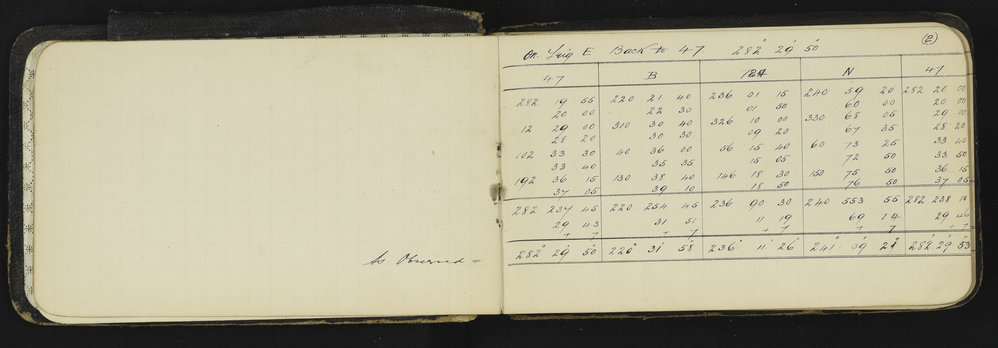 As Observed =
(2)
On Trig E Back to 47 282° 29' 50"
47 B 124 N 47
282 19 55 220 21 40 236 01 15 240 59 20 282 20 00
20 00 22 30 01 50 60 00 20 00
12 29 00 310 30 40 326 10 00 330 68 05 29 00
28 20 30 30 09 20 67 35 28 20
102 33 30 40 36 00 56 15 40 60 73 25 33 40
33 40 35 35 15 05 72 50 33 50
192 36 15 130 38 40 146 18 30 150 75 50 36 15
37 05 39 10 18 50 76 50 37 05
282 237 45 220 254 45 236 90 30 240 553 55 282 238 10
29 43 31 51 11 19 69 14 29 46
+ 7 + 7 + 7 + 7 + 7
282° 29' 50" 220° 31' 58" 236° 11' 26" 241° 09' 21" 282° 29' 53"